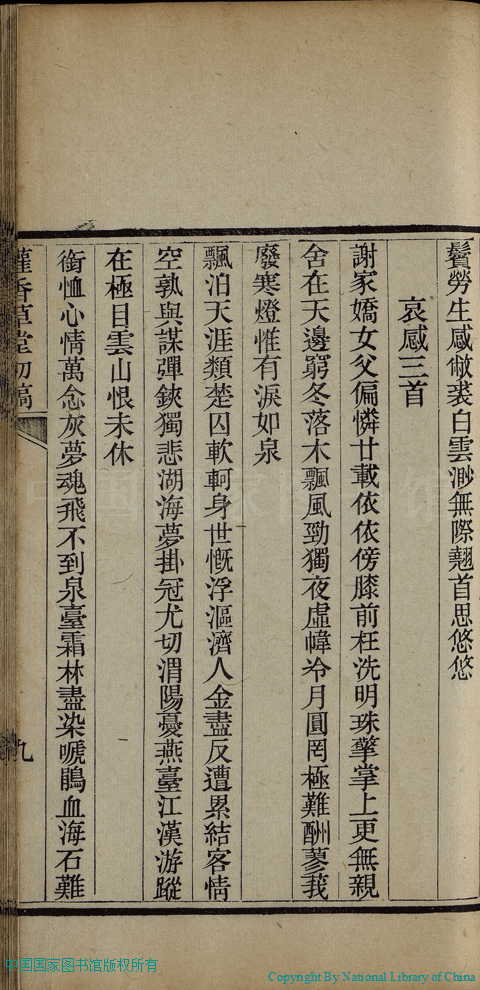 鬢勞生感敝裘白雲渺無際翹首思悠悠
哀感三首
謝家嬌女父偏憐廿載依依傍膝前枉洗明珠擎掌上更無親
舍在天邊窮冬落木飄風勁獨夜虛幃冷月圓罔極難酬蓼莪
廢寒燈惟有淚如泉
飄泊天涯類楚囚軟軻身世慨浮漚濟人金盡反遭累結客情
空孰與謀彈鋏獨悲湖海夢掛冠尤切渭陽憂燕臺江漢游蹤
在極目雲山恨未休
銜恤心情萬念灰夢魂飛不到泉臺霜林盡染嗁鵑血海石難
香草堂初稿
九
中国国家图书馆版权所有
Copyright By National Library of China